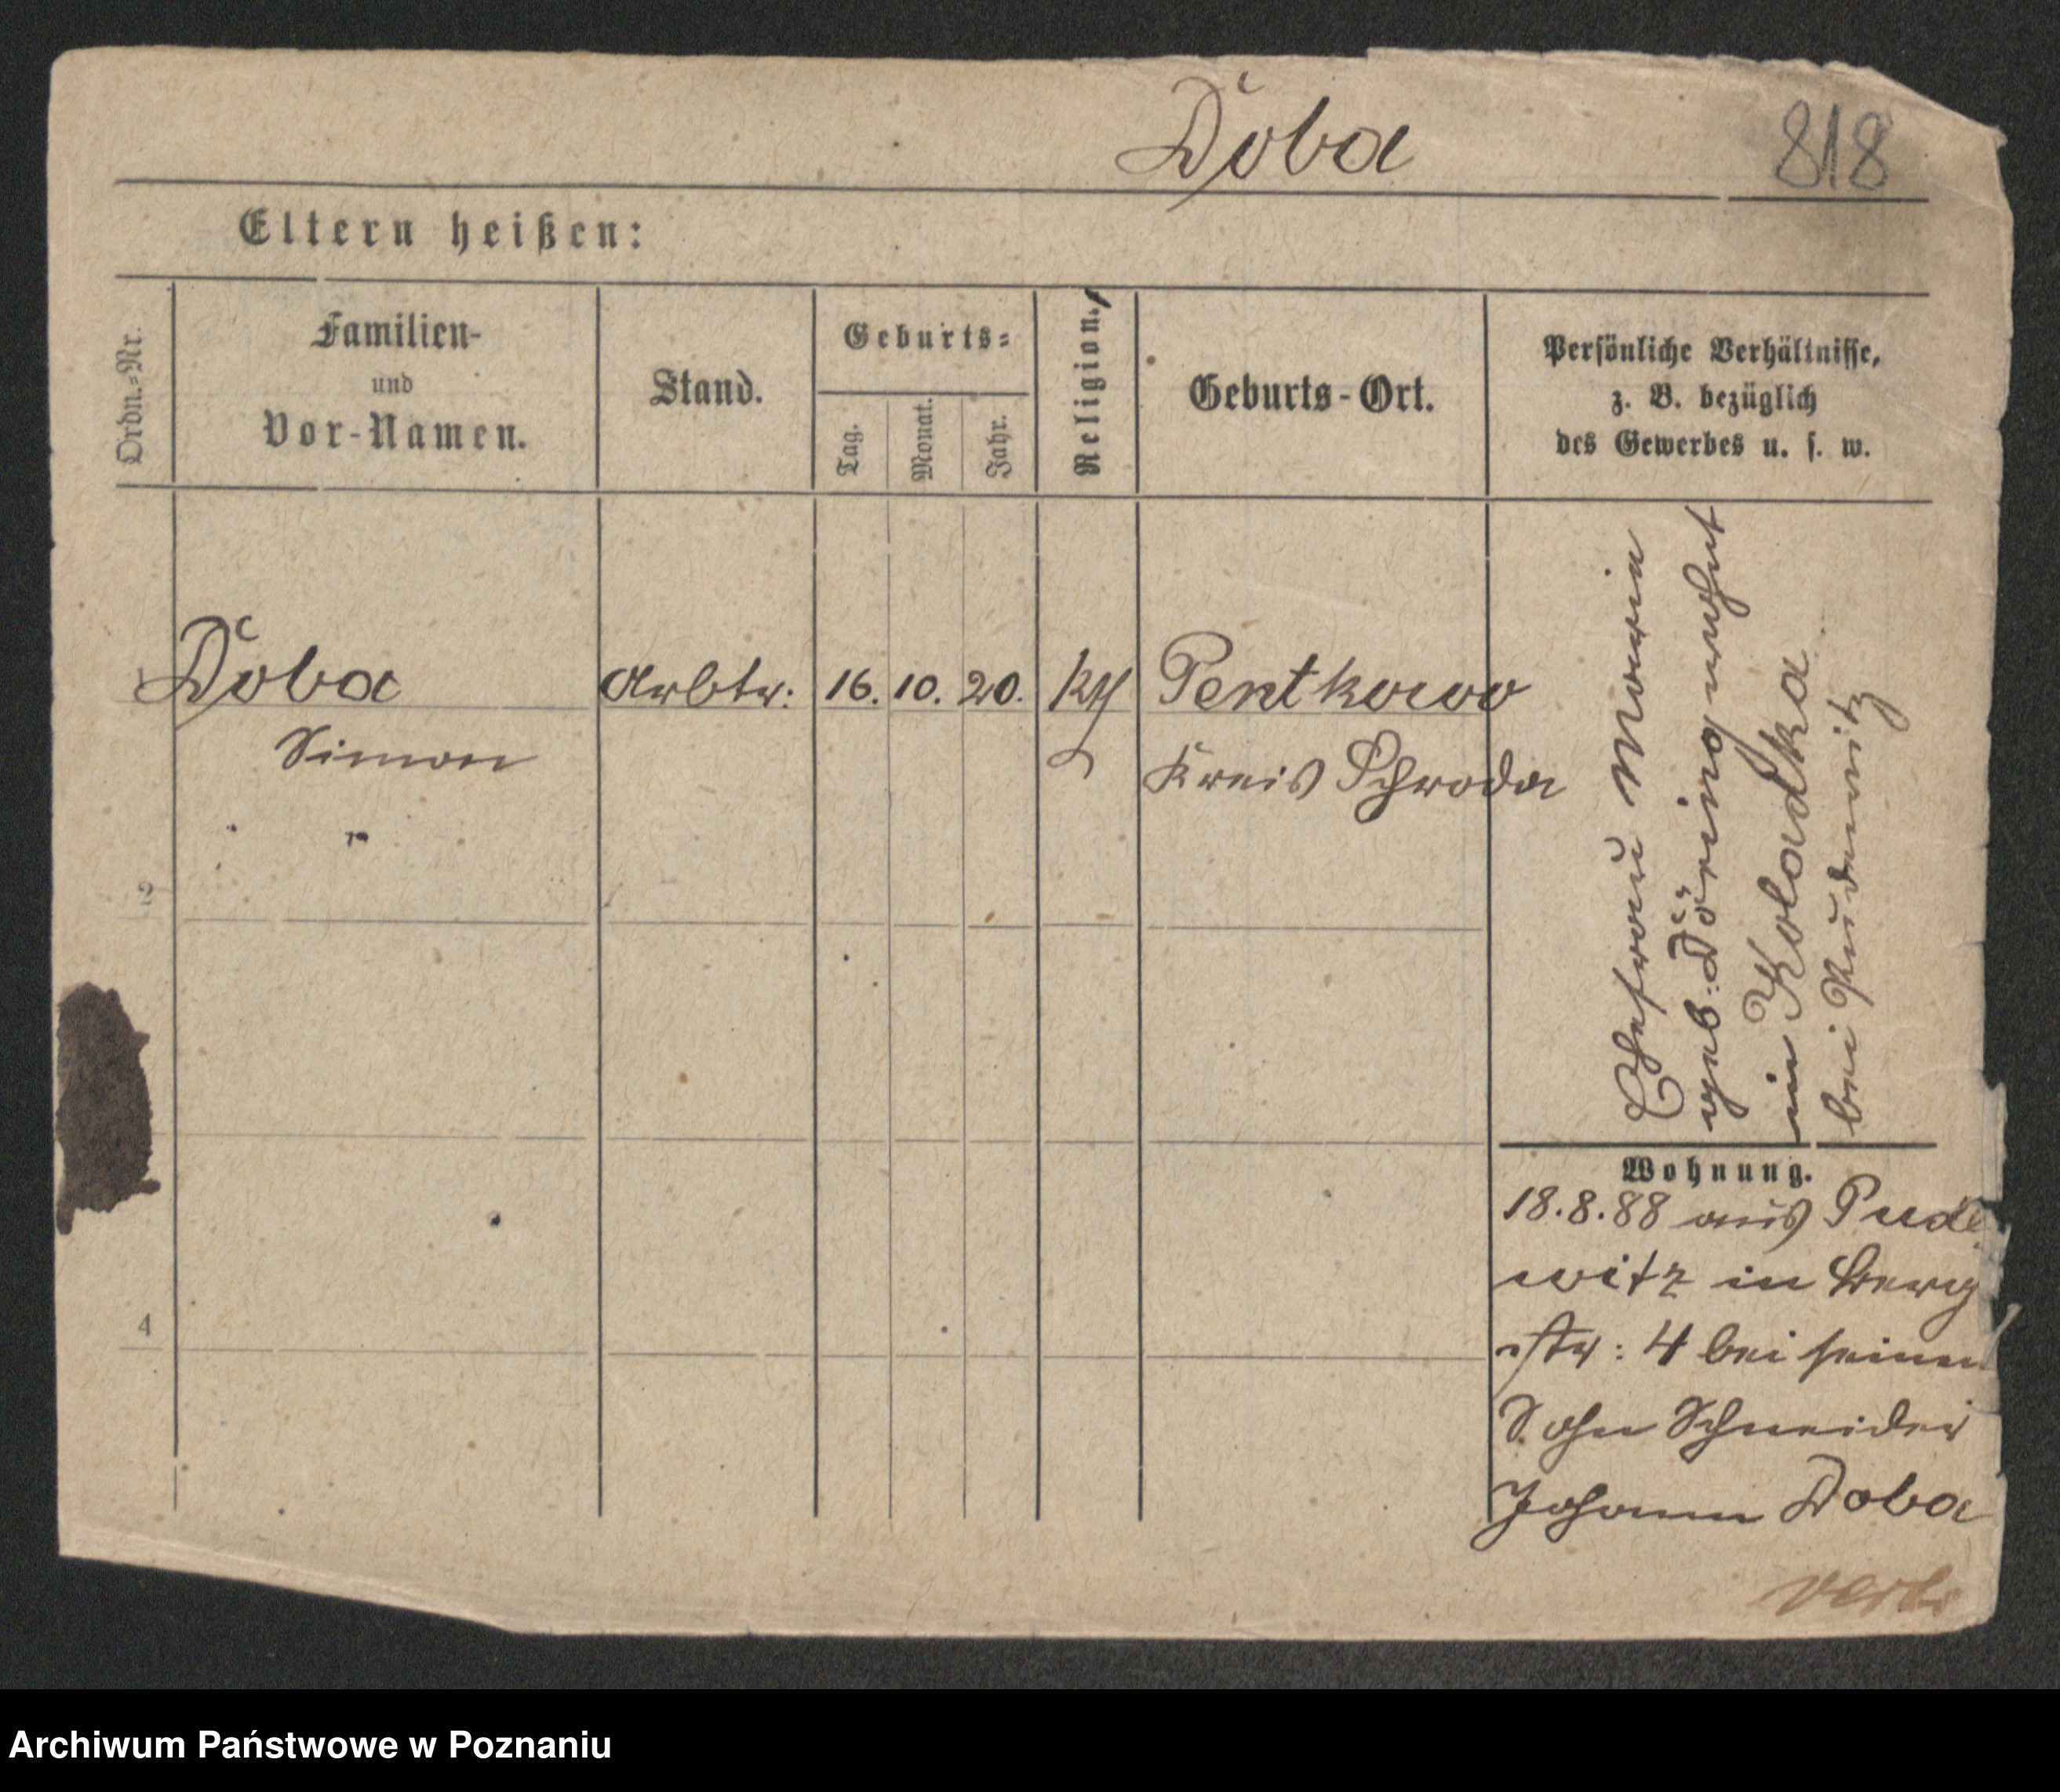 Doba
818
Eltern heißen:
Ordn.-Nr.
Familien-
und
Vor-Namen.
Stand.
Geburts-
Tag.
Monat.
Jahr.
Religion.
Geburts-Ort.
Persönliche Verhältnisse,
z. B. bezüglich
des Gewerbes u. s. w.
Doba
Simon
Arbtr:
16.
10.
20.
Pentkowo
Kreis Schroda
2
4
Ehefrau Maria
geb: Döring wohnt
in Koladka
bei Pudewitz
Wohnung.
18.8.88 aus Pude
witz in Berg
str: 4 bei seinem
Sohn Schneider
Johann Doba
Archiwum Państwowe w Poznaniu